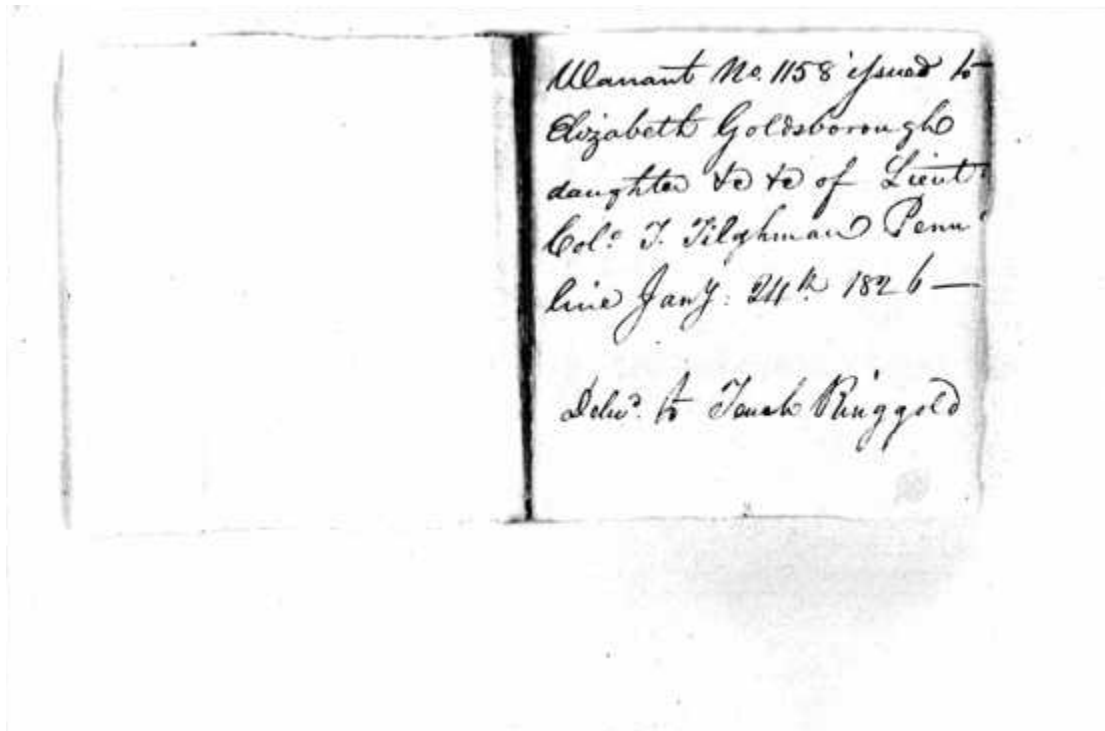 Warrant No. 1158 issued to
Elizabeth Goldsborough
daughter &c &c of Lieut
Colo. T. Tilghman Penn
line Jany: 24th 1826 —
Deld. to Tench Ringgold